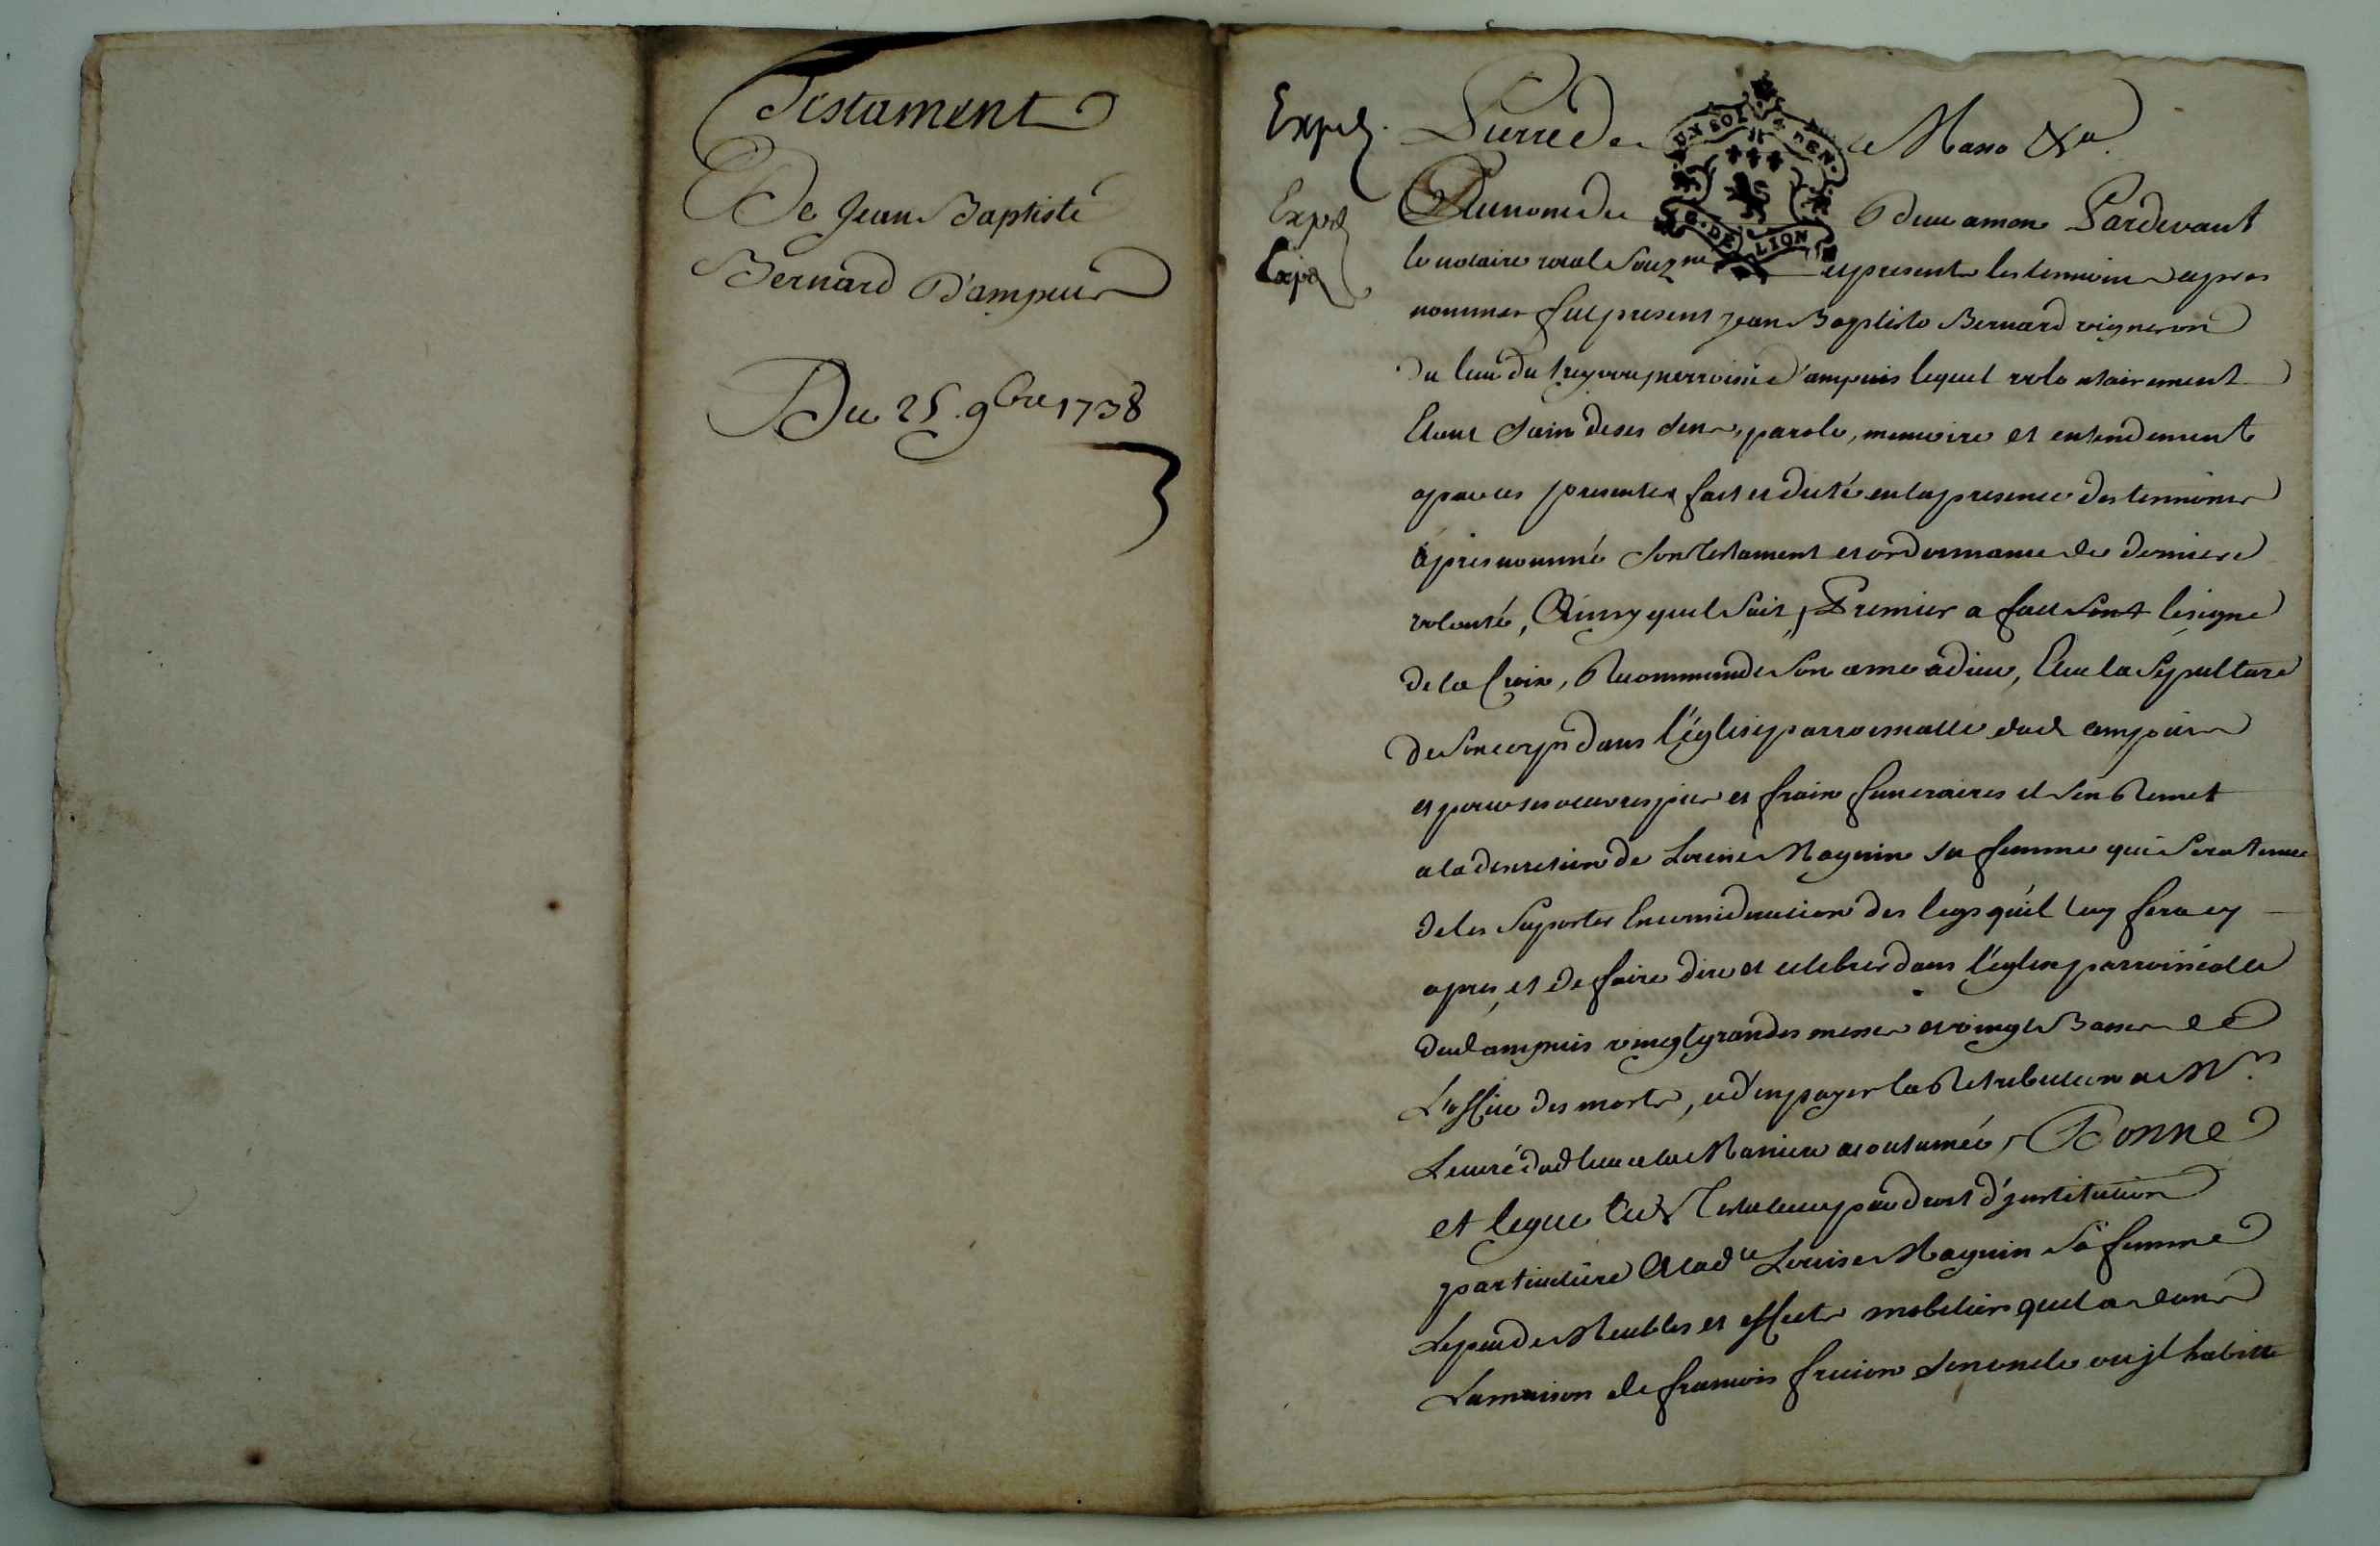 Testament
De Jean Baptiste
Bernard D'ampuis
Du 25. 9bre 1738
Exped.
Exped
Exped
Pierre de Masso &a.
UN SOL 4 DEN.
G. DE LION
Au nom de Dieu amen Pardevant
le notaire roial souzne et presents les temoins apres
nommes fut present jean Baptiste Bernard vigneron
du lieu du parroisse d'ampuis lequel volontairement
Etant sain de ses sens, parole, memoire et entendement
a par ces presentes fait et dicté en la presence des temoins
apres nommé son testament et ordonnance de derniere
volonté, Ainsy quil suit, Premier a fait sont le signe
de la Croix, Recommande son ame a dieu, Elue la sepulture
de son corps dans l'église parroissialle dud ampuis
et pour ses oeuvres pies et frais funeraires il s'en Remet
a la discretion de Louise Magnin sa femme qui sera tenue
de les suporter En consideration des legs qu'il luy fera cy
apres, et de faire dire et celebrer dans l'eglise parroissialle
dud ampuis vingt grandes messes et vingt Basses de
L'office des morts, et d'en payer la Retribution a Mr
Le curé dud lieu a la Maniere acoutumée, Donne
et legue led Testateur par droit d'institution
particuliere A lade Louise Magnin sa femme
Le peu de Meubles et effects mobiliers quil a dans
La maison de francois son oncle ou jl habitte